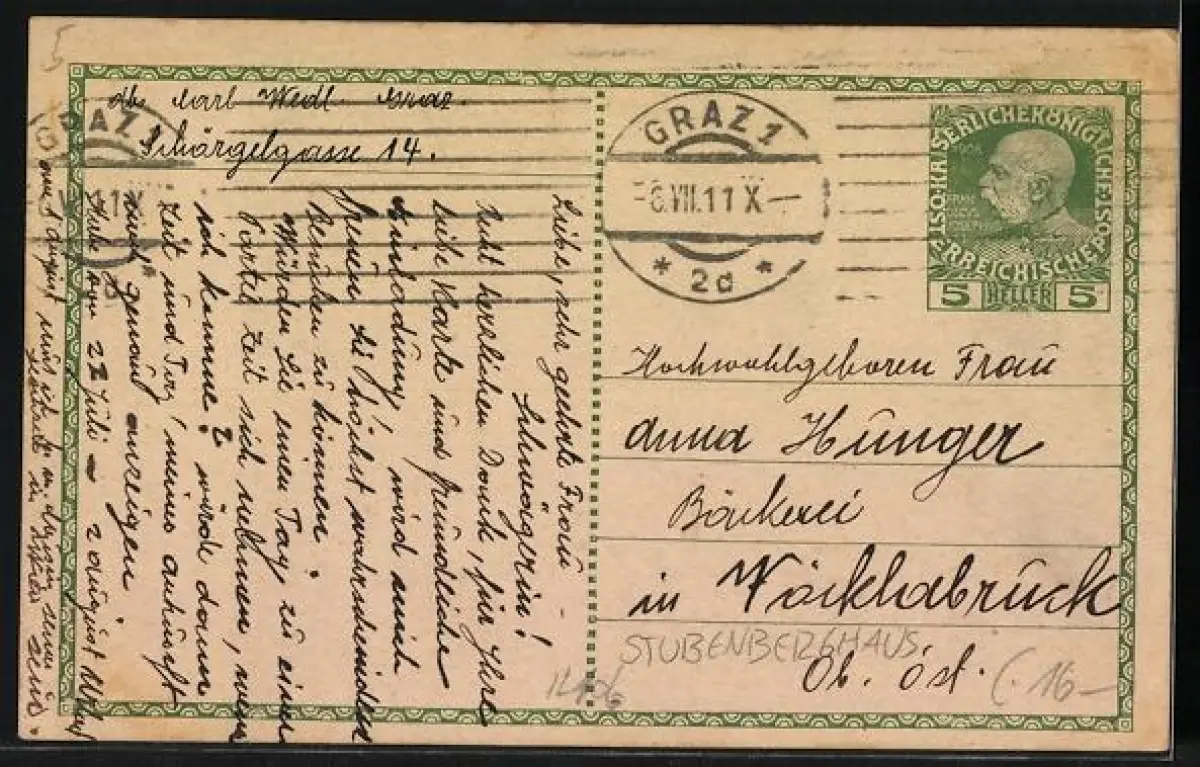 5
Carl Wedl. Graz.
Schörgelgasse 14.
GRAZ 1
GRAZ 1
VII.11 X
-8.VII.11 X-
* 2d *
KAISERLICHEKÖNIGLICHE
ÖSTERREICHISCHE POST
5 HELLER 5
Liebe, sehr geehrte Frau
Schwägerin!
Recht herzlichen Dank, für Ihre
liebe Karte und freundliche
Einladung, wird mich
freuen Sie höchst wahrscheinlich
Besuchen zu können.
Würden Sie einen Tag, zu einer
Partei Zeit sich nehmen, wenn
ich komme? würde dann
Zeit und Tag, meine ankunft
noch genau anzeigen.
22 Juli - 2 august
1 august muß ich in
Hochwohlgeboren Frau
Anna Hunger
Bäckerei
in Vöcklabruck
STUBENBERGHAUS
Ob. Öst.
(16-